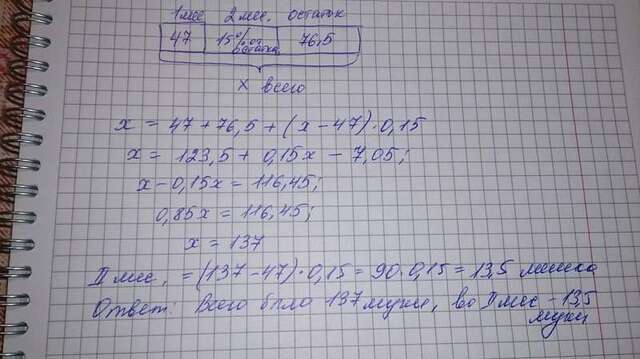 1 мес 2 мес. остаток
47 15% от остатка 76,5
x всего
x = 47 + 76,5 + (x - 47) · 0,15
x = 123,5 + 0,15x - 7,05;
x - 0,15x = 116,45;
0,85x = 116,45;
x = 137
II мес. = (137 - 47) · 0,15 = 90 · 0,15 = 13,5 мешка
Ответ: Всего было 137 муки, во II мес - 13,5
муки